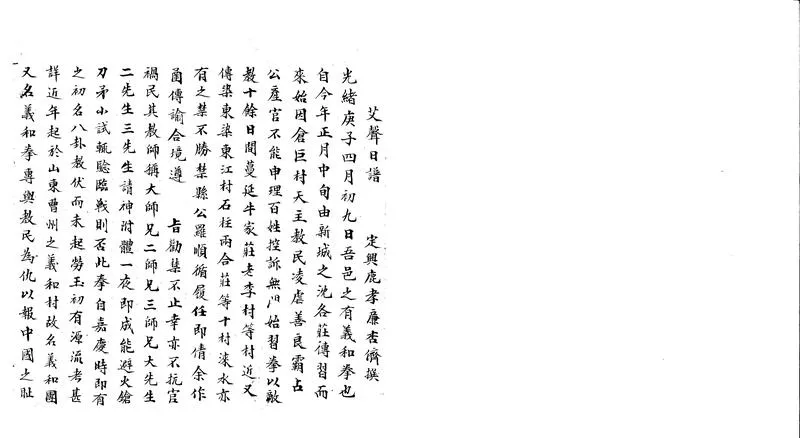 艾聲日譜　定興鹿孝廉杏儕撰
光緒庚子四月初九日吾邑之有義和拳也
自今年正月中旬由新城之沈各莊傳習而
來始因倉巨村天主教民凌虐善良霸占
公產官不能申理百姓控訴無門始習拳以敵
教十餘日間蔓延牛家莊老李村等村近又
傳染東柒東江村石柱兩合莊等十村淶水亦
有之禁不勝禁縣公羅順循履任即倩余作
函傳諭合境遵　旨勸禁不止幸亦不抗官
禍民其教師稱大師兄二師兄三師兄大先生
二先生三先生請神附體一夜即成能避火鎗
刀矛小試輒驗臨戰則否此拳自嘉慶時即有
之初名八卦教伏而未起勞玉初有源流考甚
詳近年起於山東曹州之義和村故名義和團
又名義和拳專與教民為仇以報中國之恥